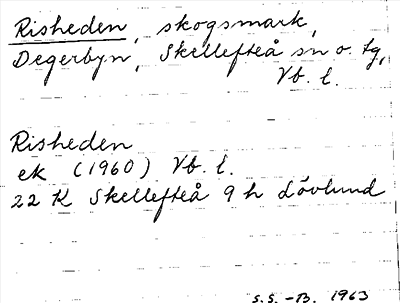 Risheden, skogsmark,
Degerbyn, Skellefteå sn o. tg,
Vb. l.
Risheden
ek (1960) Vb. l.
22 K Skellefteå 9 h Lövlund
S.S. -B. 1963